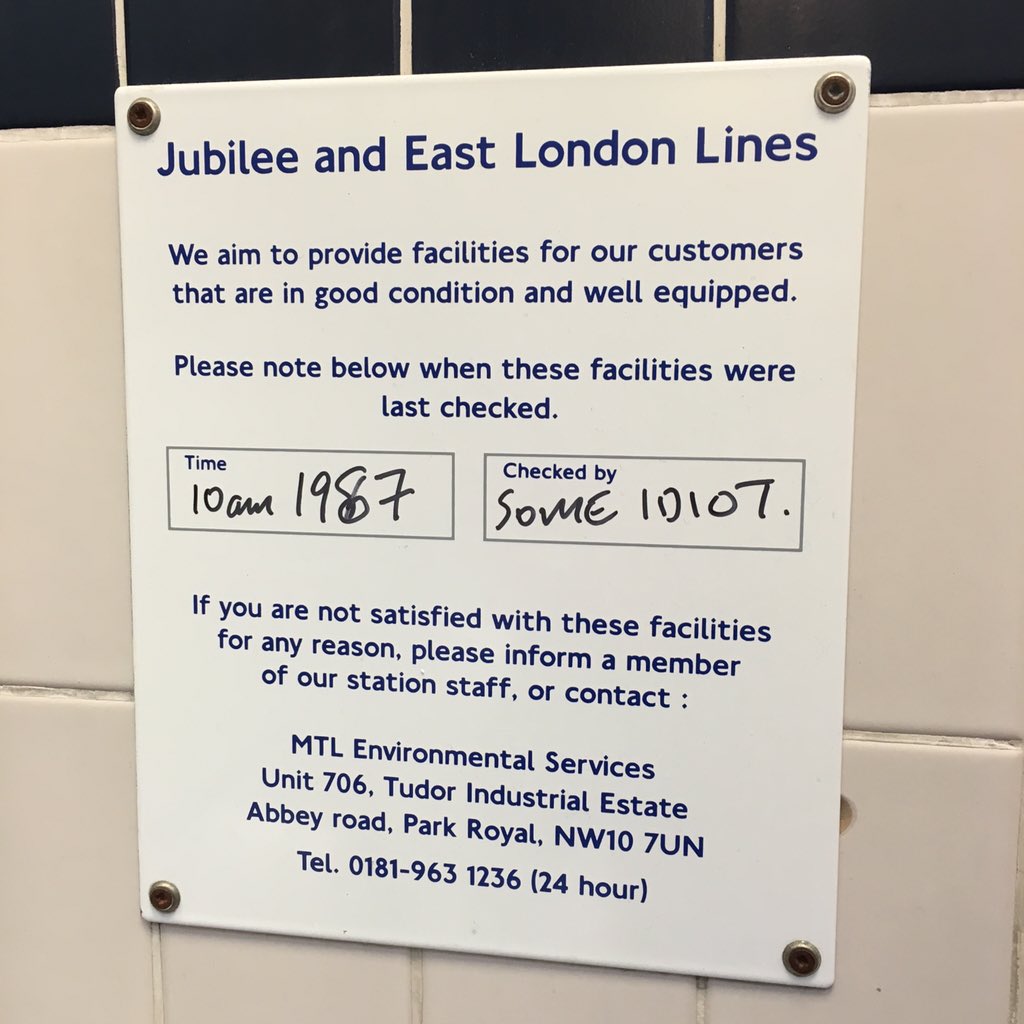 Jubilee and East London Lines
We aim to provide facilities for our customers
that are in good condition and well equipped.
Please note below when these facilities were
last checked.
Time
10am 1987
Checked by
SOME IDIOT.
If you are not satisfied with these facilities
for any reason, please inform a member
of our station staff, or contact :
MTL Environmental Services
Unit 706, Tudor Industrial Estate
Abbey road, Park Royal, NW10 7UN
Tel. 0181-963 1236 (24 hour)